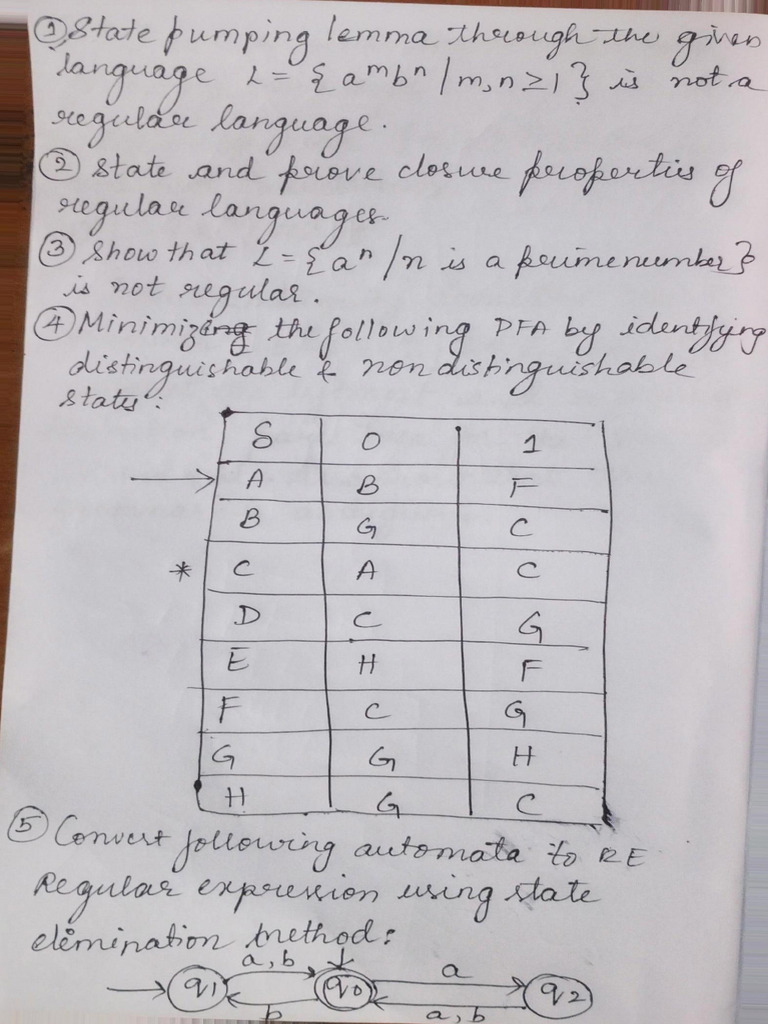 ① State pumping lemma through the given
language L = {aᵐbⁿ | m,n ≥ 1} is not a
regular language.
② State and prove closure properties of
regular languages.
③ Show that L = {aⁿ / n is a prime number}
is not regular.
④ Minimizing the following DFA by identifying
distinguishable & non distinguishable
states:
S 0 1
→ A B F
B G C
* C A C
D C G
E H F
F C G
G G H
H G C
⑤ Convert following automata to RE
Regular expression using state
elemination method:
a, b a
q1 q0 q2
b a, b